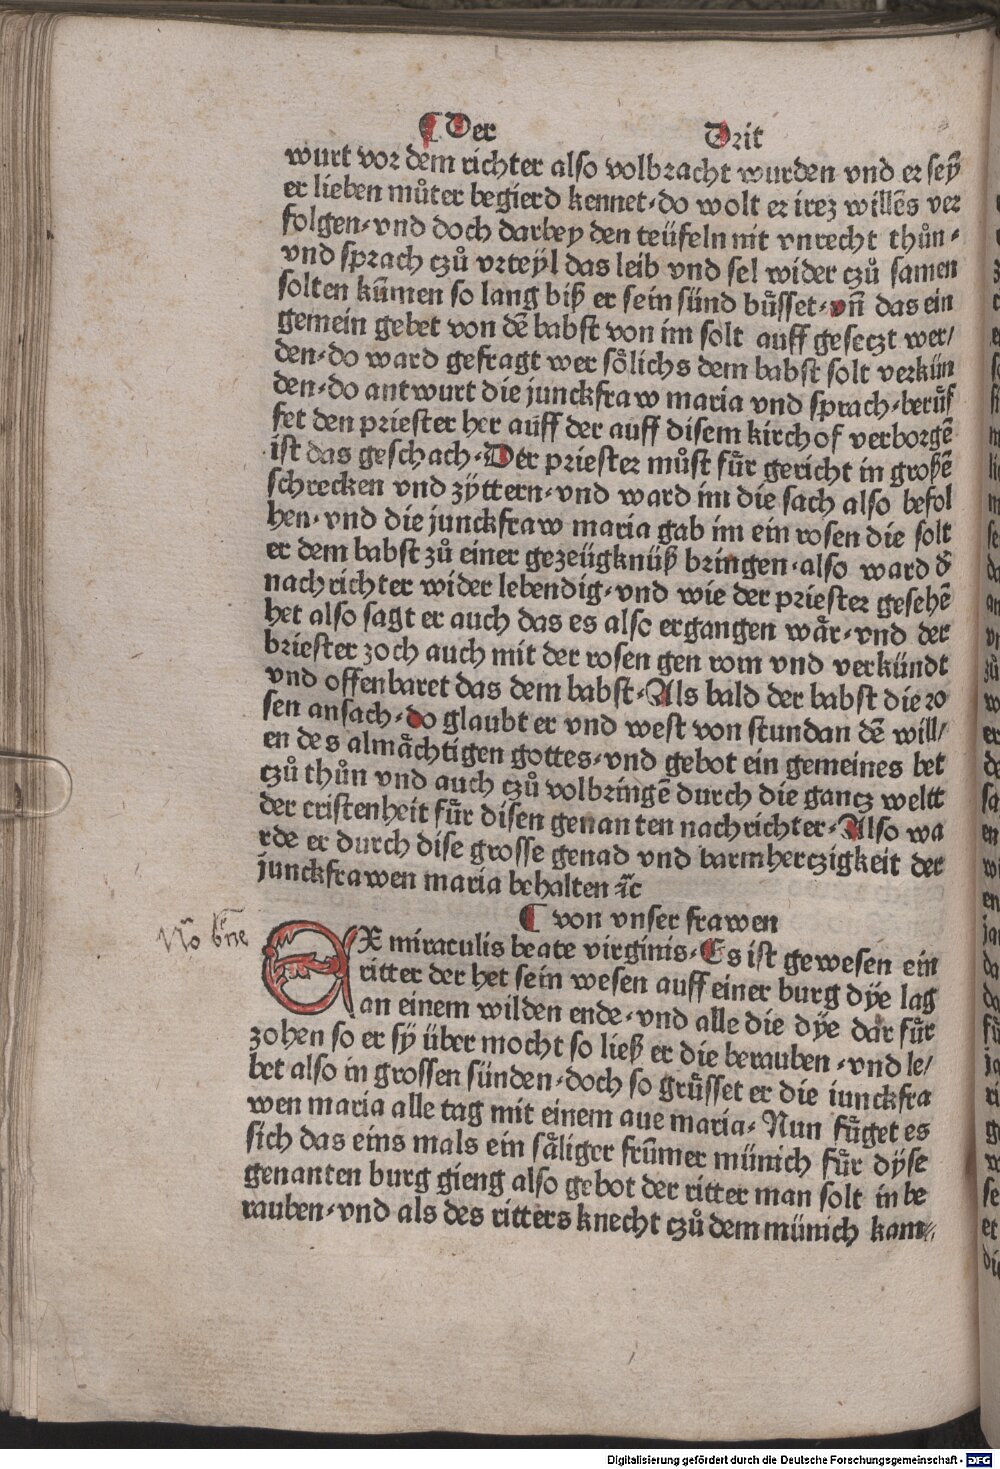 ¶ Der Drit
wurt vor dem richter also volbracht wurden vnd er seÿ
er lieben můter begierd kennet· do wolt er irez willēs ver
folgen· vnd doch darbey den teüfeln nit vnrecht thůn·
vnd sprach czů vrteyl das leib vnd sel wider czů samen
solten kūmen so lang biß er sein sünd bůsset· vn̄ das ein
gemein gebet von dē babst von im solt auff gesetzt wer/
den· do ward gefragt wer soͤlichs dem babst solt verkün
den· do antwurt die junckfraw maria vnd sprach· berůf
fet den priester her auff der auff disem kirchof verborgē
ist das geschach· Der priester můst fuͤr gericht in großē
schrecken vnd zÿttern· vnd ward im die sach also befol
hen· vnd die junckfraw maria gab im ein rosen die solt
er dem babst zů einer gezeügknüß bringen· also ward d̄
nachrichter wider lebendig· vnd wie der priester gesehē
het also sagt er auch das es also ergangen waͤr· vnd der
briester zoch auch mit der rosen gen rom vnd verkündt
vnd offenbaret das dem babst· Als bald der babst die ro
sen ansach· do glaubt er vnd west von stundan dē will/
en des almaͤchtigen gottes· vnd gebot ein gemeines bet
czů thůn vnd auch czů volbringē durch die gancz weltt
der cristenheit fuͤr disen genanten nachrichter· Also wa
rde er durch dise grosse genad vnd barmherczigkeit der
junckfrawen maria behalten ꝛ̄c
¶ von vnser frawen
No bn̄e
EX miraculis beate virginis· Es ist gewesen ein
ritter der het sein wesen auff einer burg dÿe lag
an einem wilden ende· vnd alle die dÿe dar fuͤr
zohen so er sÿ über mocht so ließ er die berauben· vnd le/
bet also in grossen sünden· doch so gruͤsset er die iunckfra
wen maria alle tag mit einem aue maria· Nun fuͤget es
sich das eins mals ein saͤliger frūmer münich fuͤr dÿse
genanten burg gieng also gebot der ritter man solt in be
rauben· vnd als des ritters knecht czů dem münich kam·
Digitalisierung gefördert durch die Deutsche Forschungsgemeinschaft - DFG